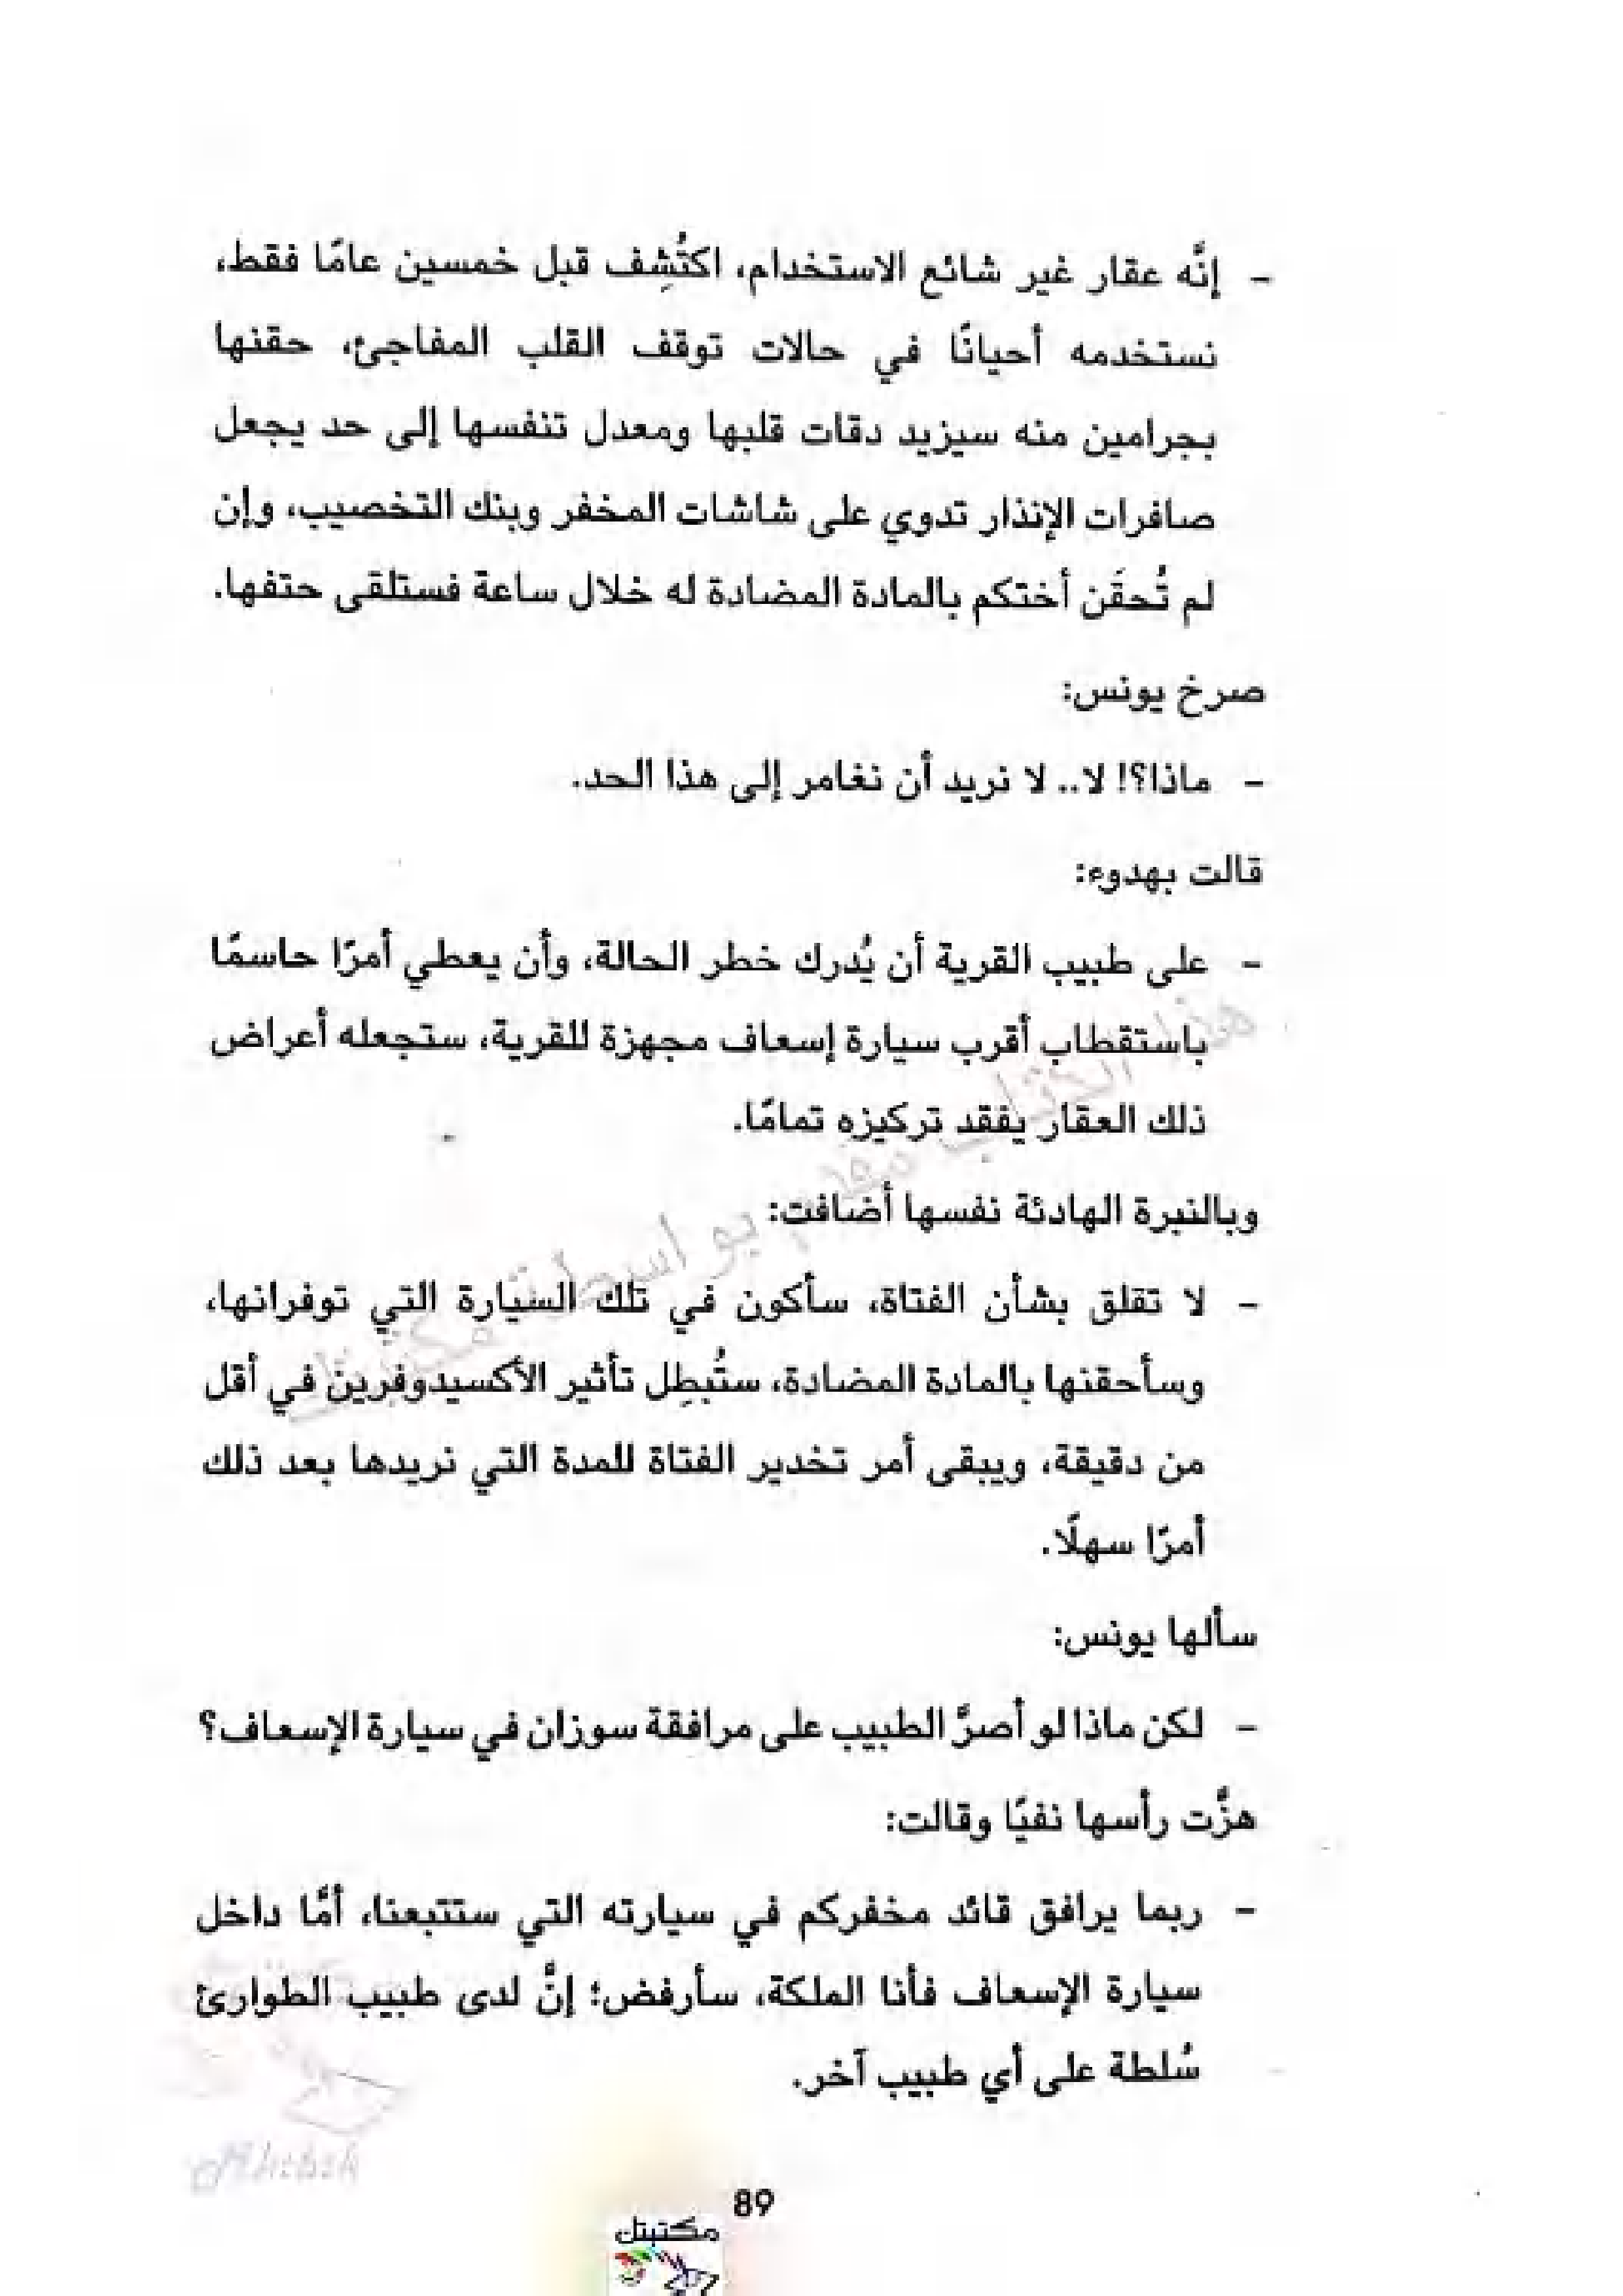 - إنَّه عقار غير شائع الاستخدام، اكتُشِف قبل خمسين عامًا فقط،
نستخدمه أحيانًا في حالات توقف القلب المفاجئ، حقنها
بجرامين منه سيزيد دقات قلبها ومعدل تنفسها إلى حد يجعل
صافرات الإنذار تدوي على شاشات المخفر وبنك التخصيب، وإن
لم تُحقَن أختكم بالمادة المضادة له خلال ساعة فستلقى حتفها.
صرخ يونس:
- ماذا؟! لا.. لا نريد أن نغامر إلى هذا الحد.
قالت بهدوء:
- على طبيب القرية أن يُدرك خطر الحالة، وأن يعطي أمرًا حاسمًا
باستقطاب أقرب سيارة إسعاف مجهزة للقرية، ستجعله أعراض
ذلك العقار يفقد تركيزه تمامًا.
وبالنبرة الهادئة نفسها أضافت:
- لا تقلق بشأن الفتاة، سأكون في تلك السيارة التي توفرانها،
وسأحقنها بالمادة المضادة، ستُبطِل تأثير الأكسيدوفرين في أقل
من دقيقة، ويبقى أمر تخدير الفتاة للمدة التي نريدها بعد ذلك
أمرًا سهلًا.
سألها يونس:
- لكن ماذا لو أصرَّ الطبيب على مرافقة سوزان في سيارة الإسعاف؟
هزَّت رأسها نفيًا وقالت:
- ربما يرافق قائد مخفركم في سيارته التي ستتبعنا، أمَّا داخل
سيارة الإسعاف فأنا الملكة، سأرفض؛ إنَّ لدى طبيب الطوارئ
سُلطة على أي طبيب آخر.
هذا الكتاب مقدم بواسطة مكتبتك
89
مكتبتك